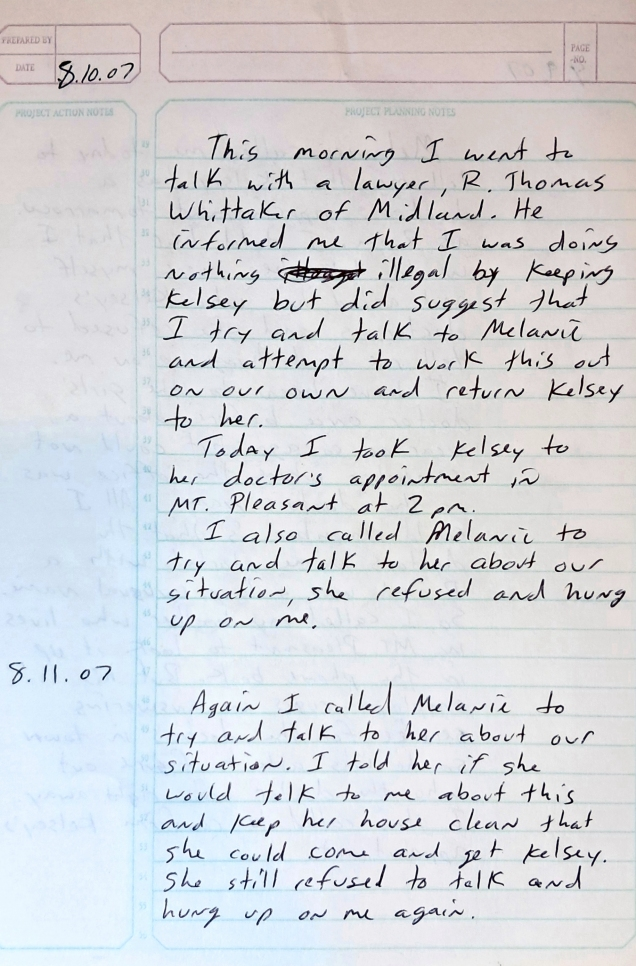 PREPARED BY
DATE
8.10.07
PAGE
NO.
PROJECT ACTION NOTES
PROJECT PLANNING NOTES
This morning I went to
talk with a lawyer, R. Thomas
Whittaker of Midland. He
informed me that I was doing
nothing illegal by keeping
Kelsey but did suggest that
I try and talk to Melanie
and attempt to work this out
on our own and return Kelsey
to her.
Today I took Kelsey to
her doctor's appointment in
MT. Pleasant at 2 pm.
I also called Melanie to
try and talk to her about our
situation, she refused and hung
up on me.
8.11.07
Again I called Melanie to
try and talk to her about our
situation. I told her if she
would talk to me about this
and keep her house clean that
she could come and get Kelsey.
She still refused to talk and
hung up on me again.